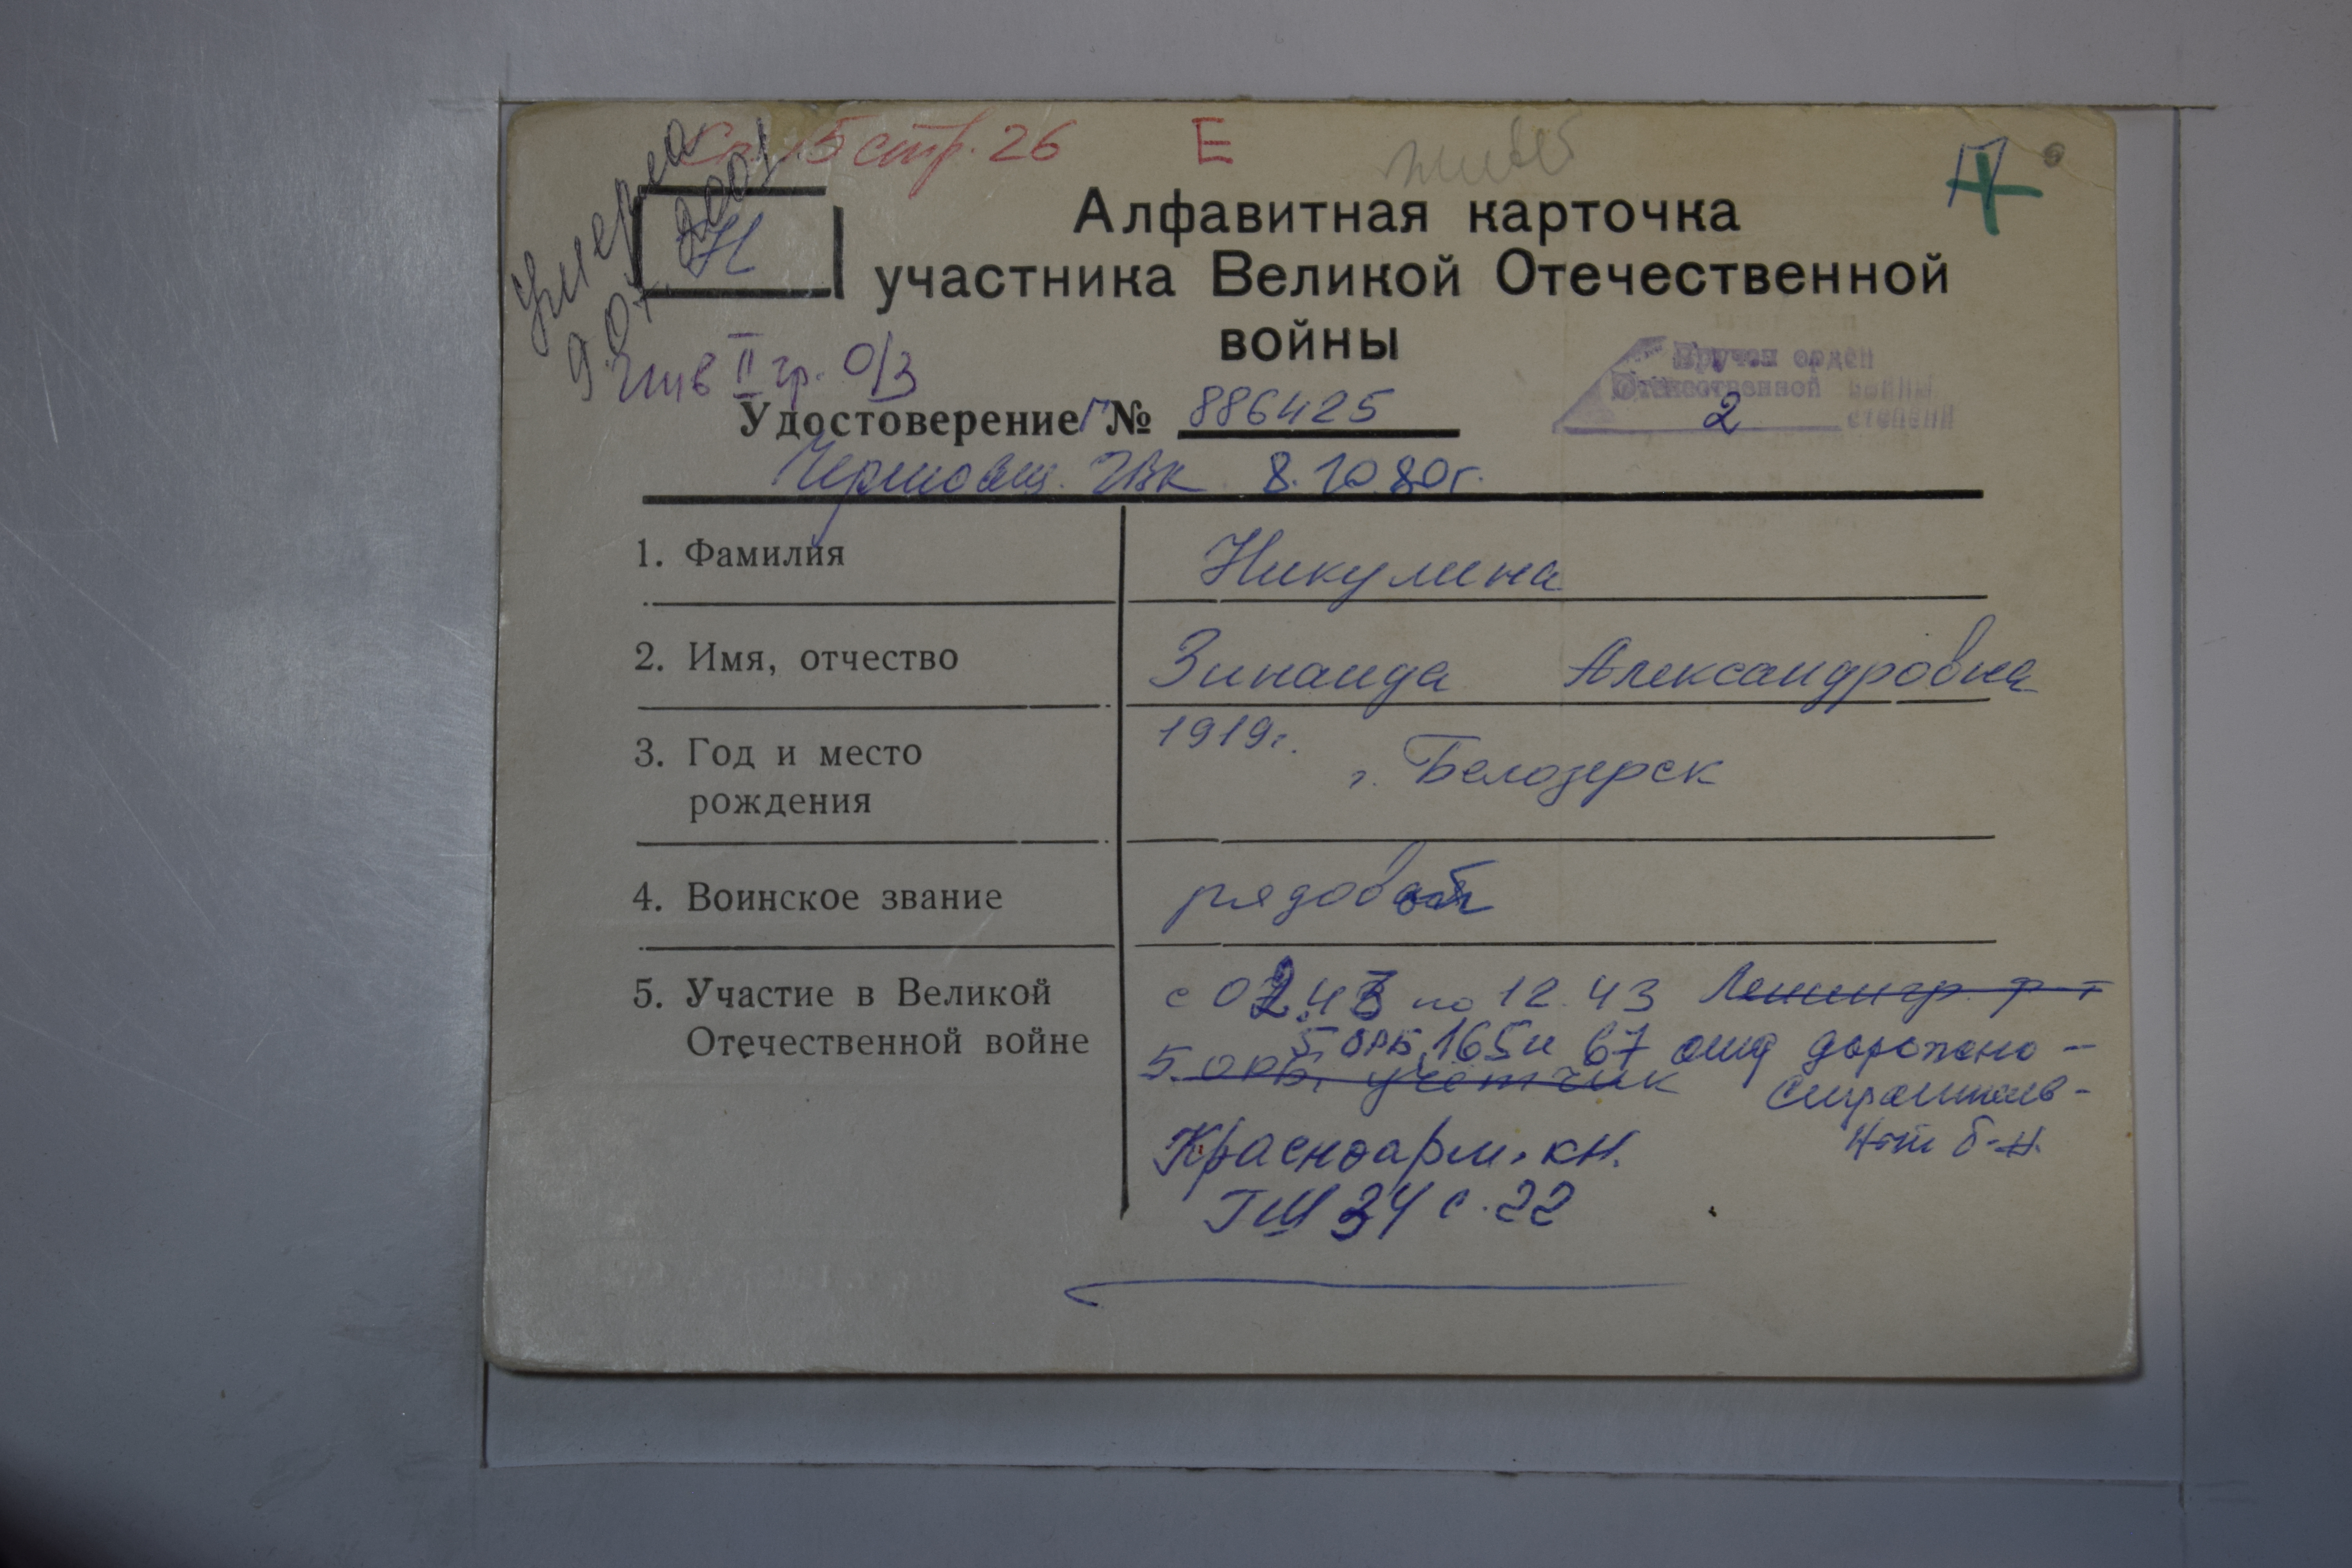 Сп. 15 стр. 26 Е
Умерла
9.01.2001
Н
Алфавитная карточка
участника Великой Отечественной
войны
Инв II гр. О/З
Вручен орден
Отечественной войны
2 степени
Удостоверение Г № 886425
Черповец. ГВК 8.10.80г.
1. Фамилия Никулина
2. Имя, отчество Зинаида Александровна
3. Год и место рождения 1919г.
г. Белозерск
4. Воинское звание рядовой
5. Участие в Великой Отечественной войне
с 02.43 по 12.43 Ленингр. ф-т
5 орб, 165 и 67 отд дорожно-
5 орб, учетчик строительв-
н-ый б-н.
Красноарм. кн.
ГШ 34 с. 22